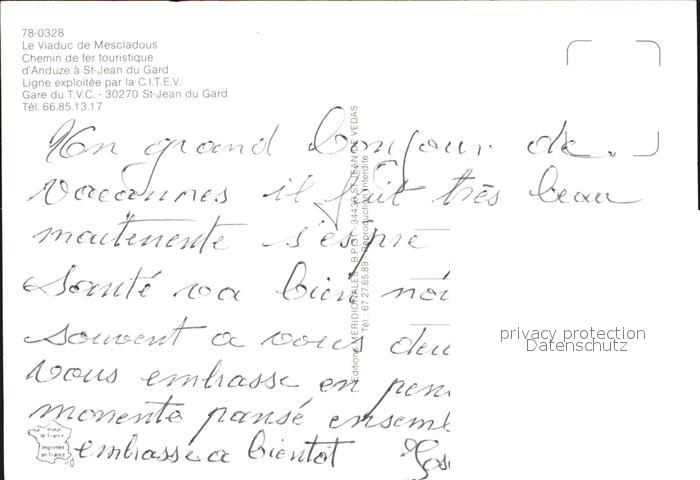 78-0328
Le Viaduc de Mescladous
Chemin de fer touristique
d'Anduze à St-Jean du Gard
Ligne exploitée par la C.I.T.E.V.
Gare du T.V.C. - 30270 St-Jean du Gard
Tél. 66.85.13.17
Un grand bonjour de
vacannes il fait très beau
maitenente s'espre
Santé va bien
souvent a vous
vous embrasse en
monente pansé
embrasse a bientot
Editions MERIDIONALES - B.P. 31 - 34430 ST-JEAN DE VEDAS
Tél.: 67.27.65.89 - Reproduction interdite
privacy protection
Datenschutz
imprimée
en France